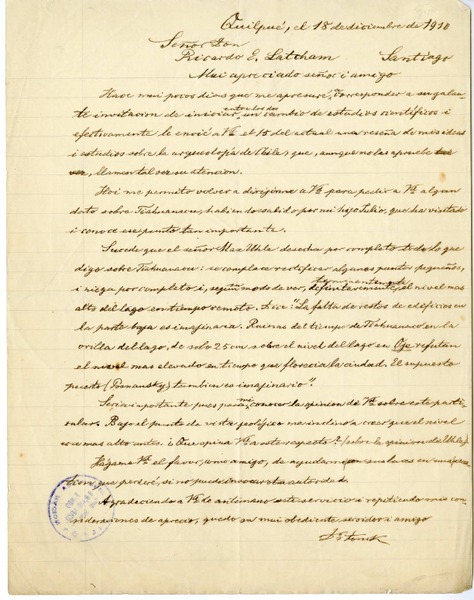 Quilpué, el 18 de diciembre de 1910
Señor Don
Ricardo E. Latcham Santiago
Mui apreciado señor i amigo
Hace mui pocos dias que me apresuré, corresponder a su galan-
te invitacion de iniciar entre los dos un cambio de estudios científicos i
efectivamente le envié a Vd. el 15 del actual una reseña de mis ideas
i estudios sobre la arqueolojía de Chile, que, aunque no las apruebe
llamen tal vez su atencion.
Hoi me permito volver a dirijirme a Vd. para pedir a Vd. algun
dato sobre Tiahuanacu, habiendo sabido por mi hijo que ha visitado
i conoce ese punto tan importante.
Sucede que el señor Max Uhle desecha por completo todo lo que
digo sobre Tiahuanacu: se complace rectificar algunos puntos pequeños,
i niega por completo i, segun modo de ver, el nivel mas
alto del lago en tiempo remoto. Dice: "La falta de restos de edificios en
la parte baja es imajinaria. Ruinas del tiempo de Tiahuanaco en la
orilla del lago, de solo 25 cm sobre el nivel del lago en Oje refutan
el nivel mas elevado en tiempo que florecia la ciudad. El supuesto
puerto (Posnansky) tambien es imajinario".
Seria importante pues para mi, conocer la opinion de Vd. sobre este parti-
cular. Bajo el punto de vista jeolójico me inclino a creer que el nivel
era mas alto antes. i Que opina Vd. a este respecto? (sobre la opinion de Uhle)
Hágame Vd. el favor, como amigo, de ayudarme con sus luces en una
cion que perderé, si no puedo invocar otro autor de
Agradeciendo a Vd. de antemano este servicio i repitiendo mis con-
sideraciones de aprecio, quedo su mui obediente servidor i amigo
F. Fonck